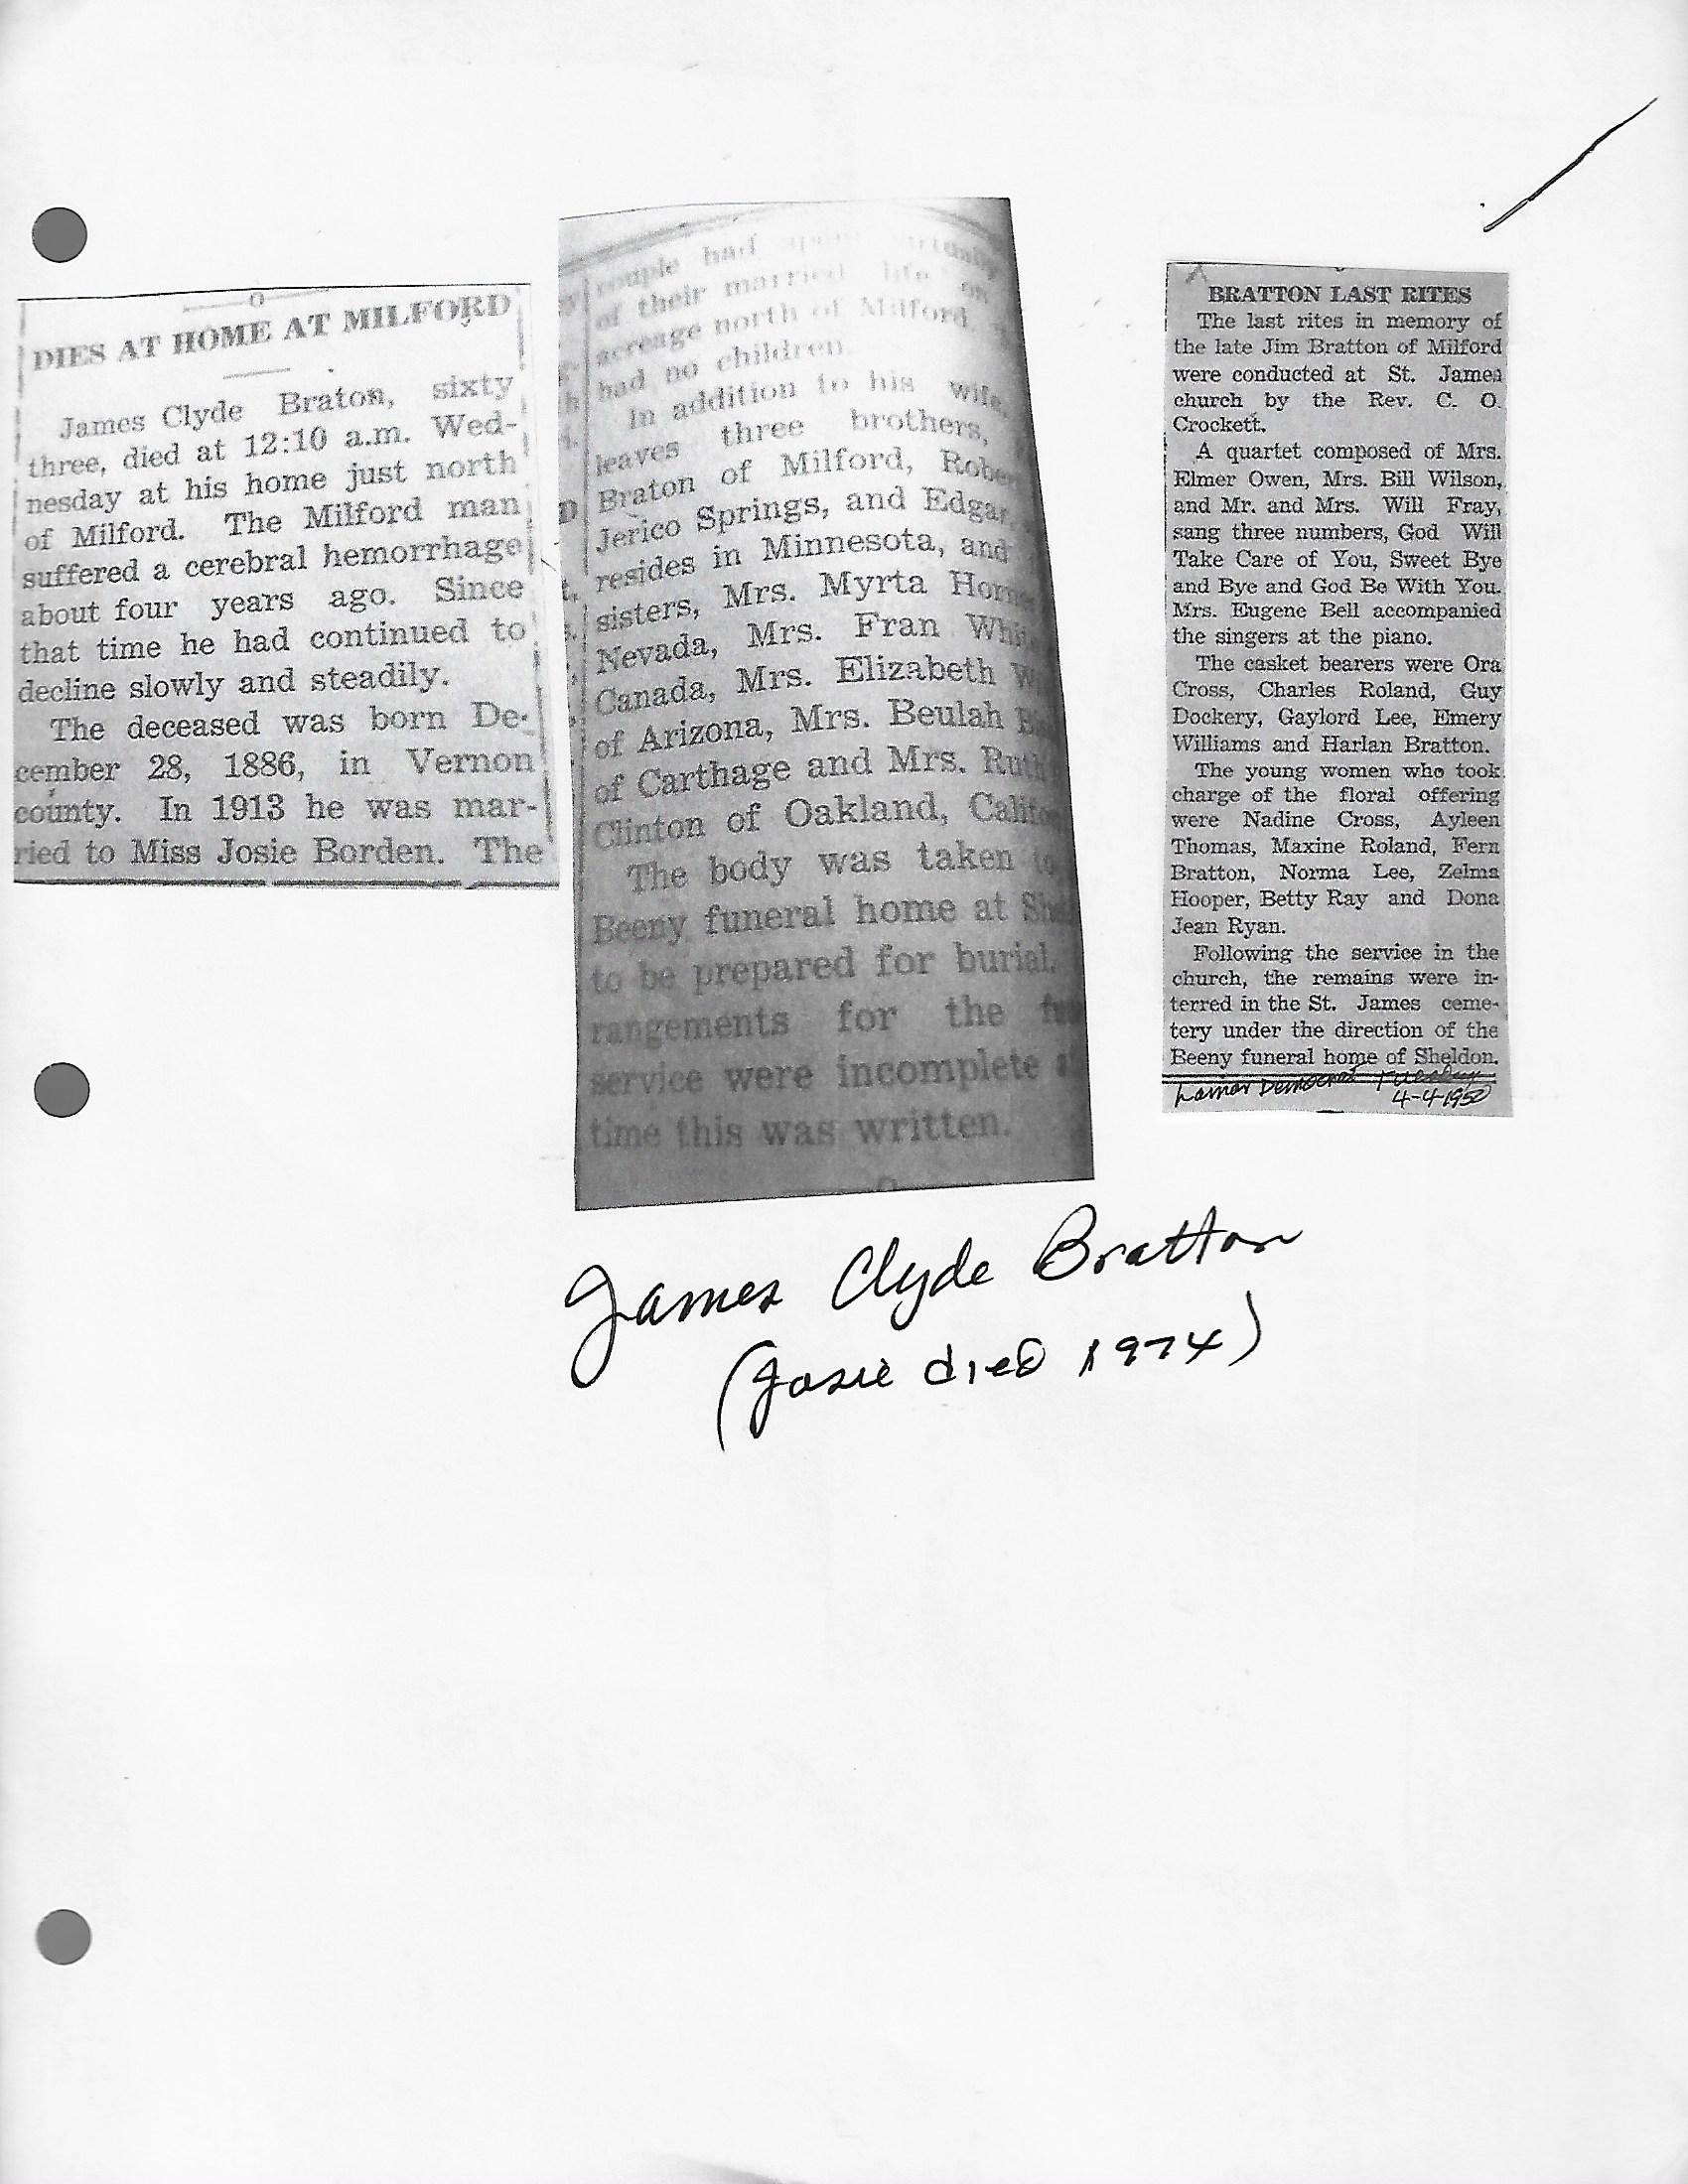 DIES AT HOME AT MILFORD
James Clyde Braton, sixty
three, died at 12:10 a.m. Wed-
nesday at his home just north
of Milford. The Milford man
suffered a cerebral hemorrhage
about four years ago. Since
that time he had continued to
decline slowly and steadily.
The deceased was born De-
cember 28, 1886, in Vernon
county. In 1913 he was mar-
ried to Miss Josie Borden. The
couple had spent virtually
of their married life on
acreage north of Milford
had no children.
In addition to his wife,
leaves three brothers,
Braton of Milford, Rober
Jerico Springs, and Edgar
resides in Minnesota, and
sisters, Mrs. Myrta Horn
Nevada, Mrs. Fran Whi
Canada, Mrs. Elizabeth W
of Arizona, Mrs. Beulah
of Carthage and Mrs. Ruth
Clinton of Oakland, Califo
The body was taken to
Beeny funeral home at Sh
to be prepared for burial.
rangements for the
service were incomplete
time this was written.
BRATTON LAST RITES
The last rites in memory of
the late Jim Bratton of Milford
were conducted at St. James
church by the Rev. C. O.
Crockett.
A quartet composed of Mrs.
Elmer Owen, Mrs. Bill Wilson,
and Mr. and Mrs. Will Fray,
sang three numbers, God Will
Take Care of You, Sweet Bye
and Bye and God Be With You.
Mrs. Eugene Bell accompanied
the singers at the piano.
The casket bearers were Ora
Cross, Charles Roland, Guy
Dockery, Gaylord Lee, Emery
Williams and Harlan Bratton.
The young women who took
charge of the floral offering
were Nadine Cross, Ayleen
Thomas, Maxine Roland, Fern
Bratton, Norma Lee, Zelma
Hooper, Betty Ray and Dona
Jean Ryan.
Following the service in the
church, the remains were in-
terred in the St. James ceme-
tery under the direction of the
Beeny funeral home of Sheldon.
Lamar Democrat Tuesday
4-4-1950
James Clyde Bratton
(Josie died 1974)